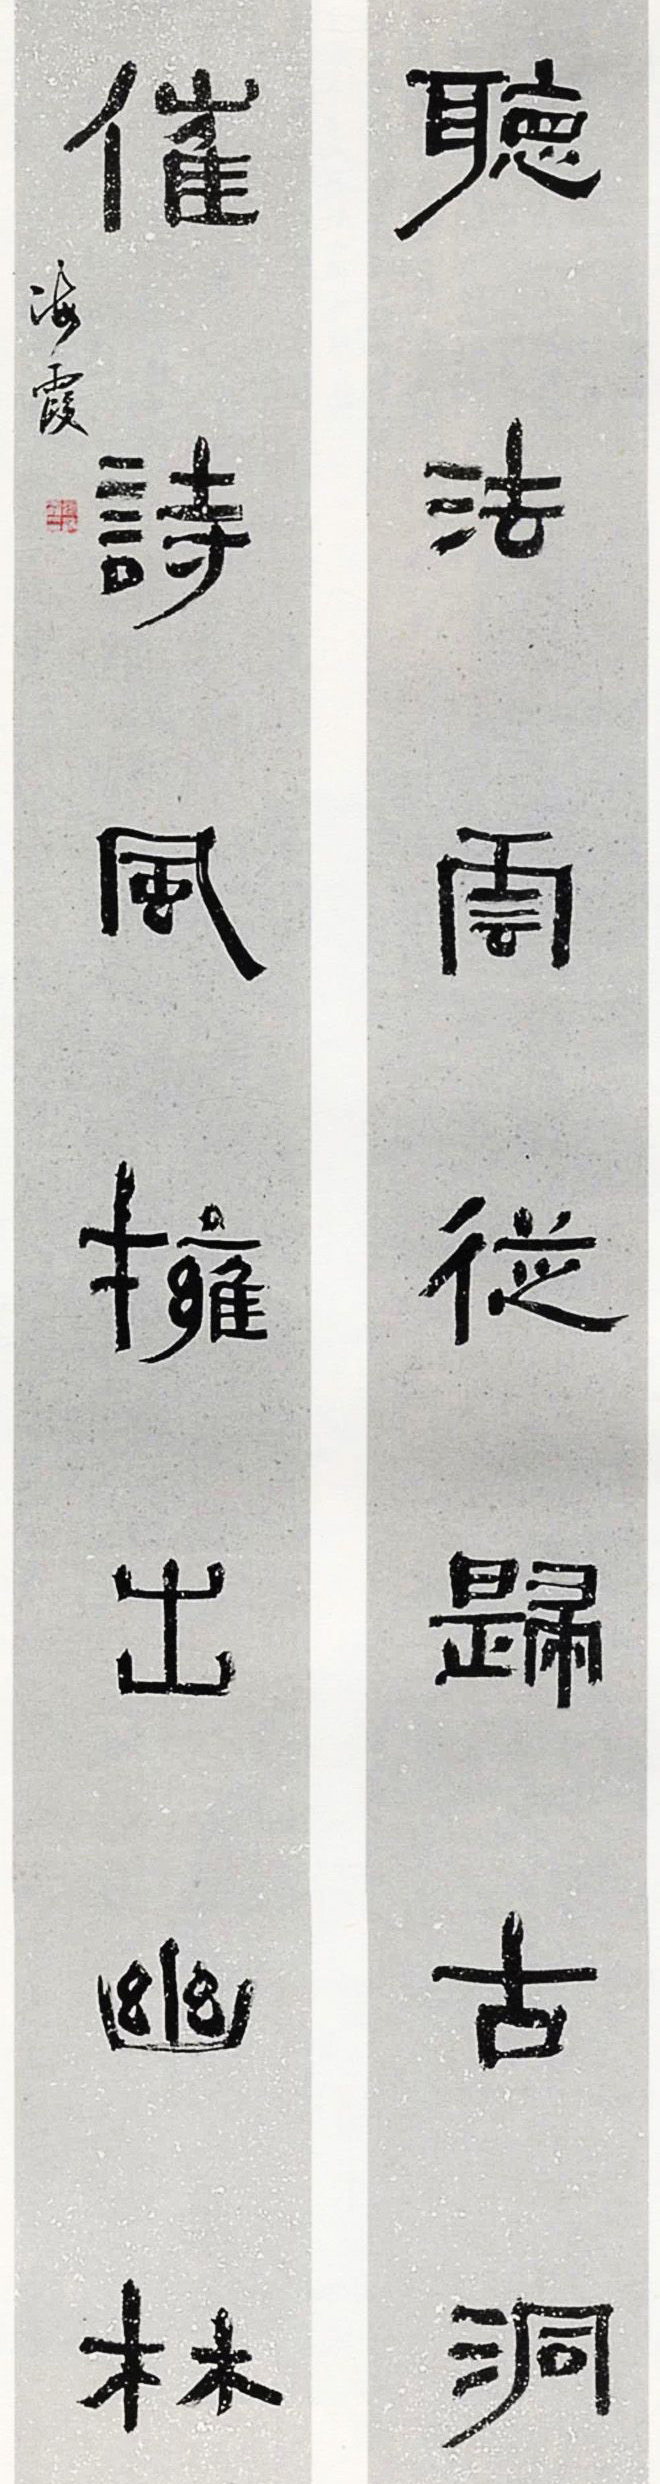 聽法雲從歸古洞
催詩風擁出幽林
海霞